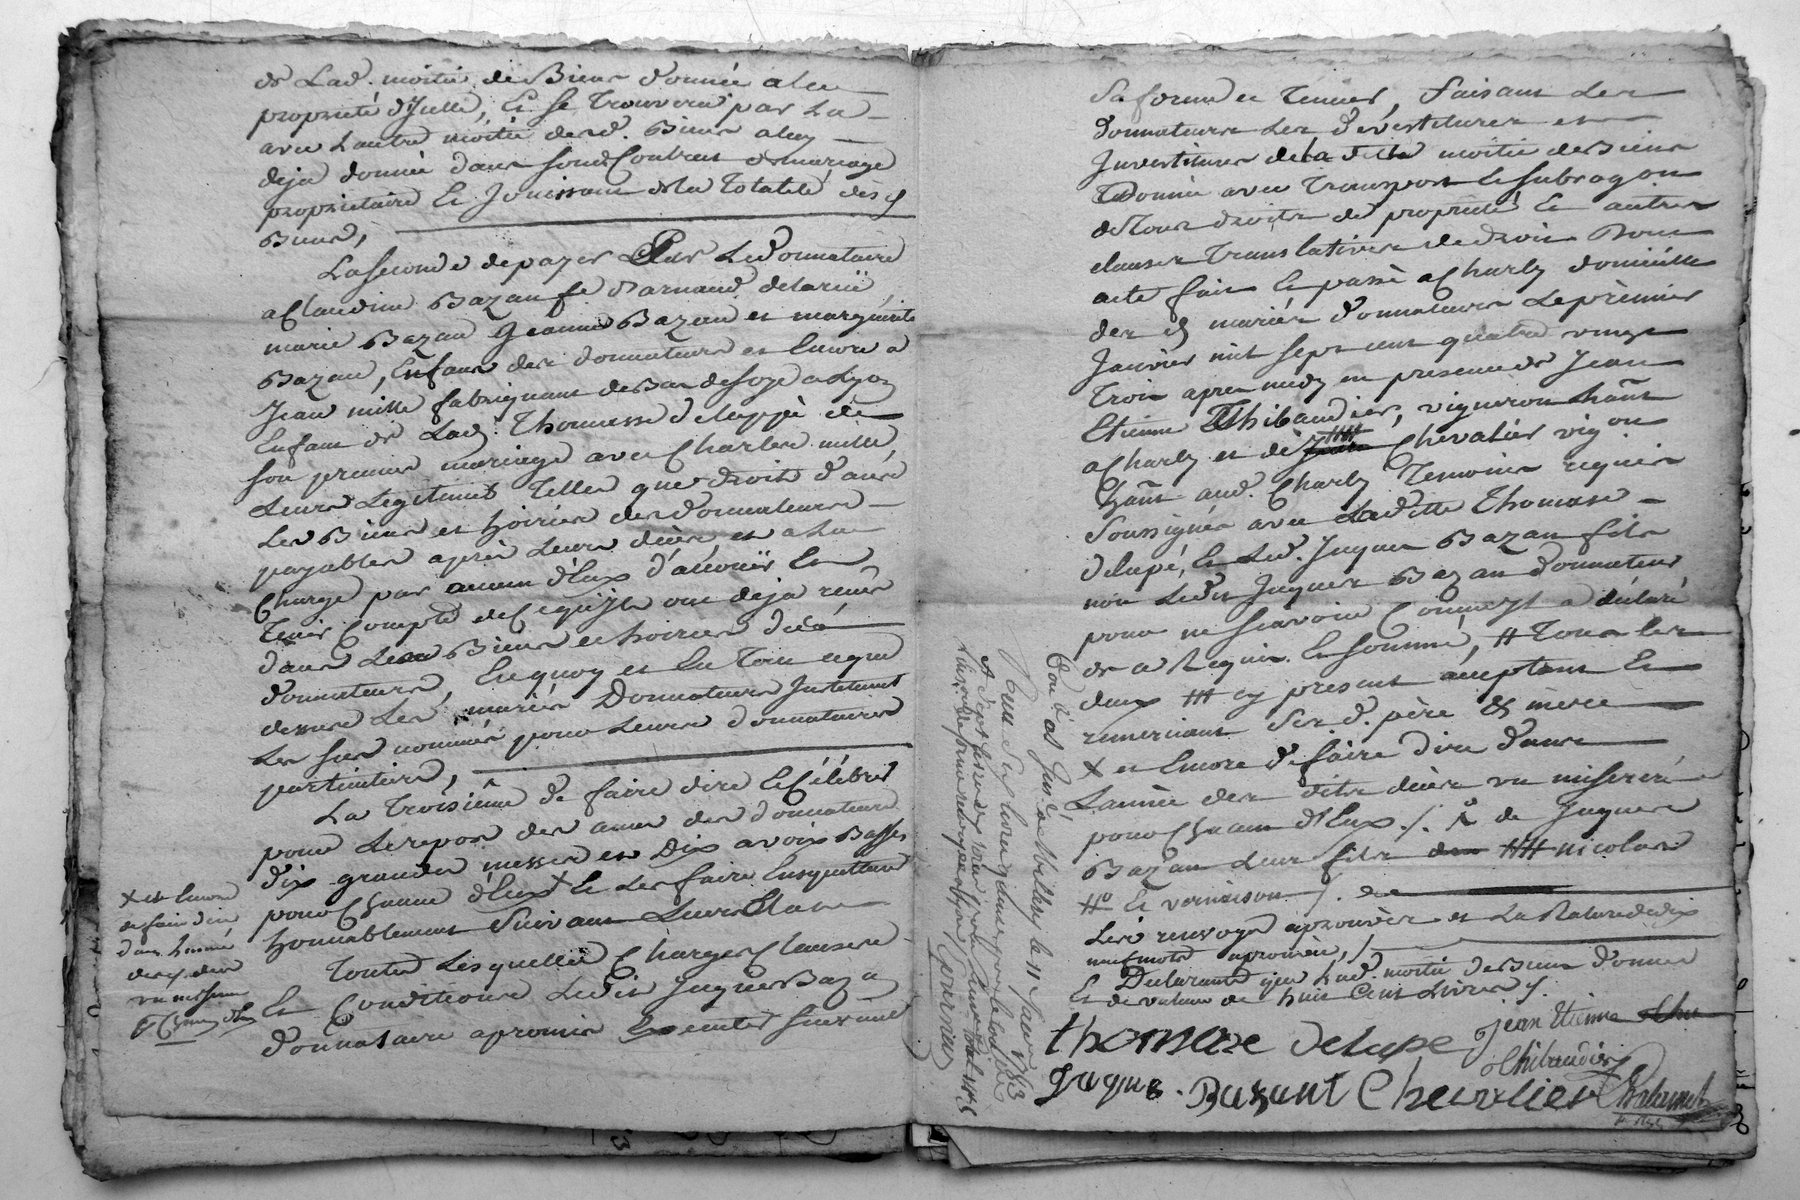 de Lad. moitié de Biens donnée a leu
proprieté d'Icelle, Et se Trouvera par La
avec Lautre moitié desd. Biens a luy
deja donnée dans sond Contrat de mariage
proprietaire Et Jouissant de la Totalité desd
Biens,
La seconde de payer Par Le donnataire
a Claudine Bazan fe d'arnaud delarüe,
marie Bazan Jeanne Bazan et marguerite
Bazan, Enfans des donnateurs et Encore a
Jean mille fabriquant de Bas de soye a Lyon
Enfant de Lad. Thomasse deluppé de
son premier mariage avec Charles mille,
Leurs Legitimes Telles que de droit dans
Les Biens et hoiries des donnateurs
payables après Leurs décès et a la
Charge par aucun d'Eux d'avouer Et
Tenir Compte de Ce qu'Ils ont deja reçus
dans Les Biens et hoiries dud
donnateurs, En quoy et En Tout ce que
dessus Les mariés Donnateurs Instituent
Les sus nommés pour Leurs donnataires
particuliers,
La Troisiême de faire dire Et Célébrer
pour Le repos des ames des donnateurs
dix grandes messes et Dix a voix Basses
pour Chacun d'Eux + Et Les faire Ensepulturer
honnablement Suivant Leur Etat
Toutes Lesquelles Charges Clauses
Et Conditions Ledit Jaques Bazan
donnataire a promis Executer suivant
+ et Encore
de faire dire
dans Lannée
desd. deces
un miserere
p Chacun d'Eux
Sa forme et Teneur, faisant Les
donnateurs Les devestitures et
Investitures de la dette moitié de Biens
donnée avec Transport Et subrogation
de Tous droits de proprieté Et autres
clauses Translatives de droit Dont
acte fait Et passé a Charly domicille
des d mariés donnateurs Le prémier
Janvier mil sept cent quatre vingt
Trois apres midy en presence de Jean
Etienne Thibaudier, vigneron hânt
a Charly et de Jean Chevalier vigon
hânt aud. Charly Temoins requis
Soussignés avec Ladette Thomasse
delupé, Et Led. Jaques Bazan fils
non Ledit Jaques Bazan donnateur
pour ne sçavoir Comme Il a déclaré
de ce Requis Et sommé, # Tous Les
deux ## cy present acceptant Et
remerciant Ses d. père & mère
+ et Encore de faire dire dans
Lannée des dits décès un miseréré
pour Chacun d'Eux ./. de Jaques
Bazan Leur fils ## nicolas
## Et vernaison ./.
Les renvoys aprouvés et La Rature de dix
neuf mots aprouvée, /.
Et Declarants que Lad. moitié de Biens donnée
Et de valeur de huit Cent Livres ./.
thomaze delupe jean Etienne
thibaudier
Jaque. Bazant Chevalier
Con.lé a St Gen. le 11 Janv. 1783
Reçu Six livres quinze sols
Fournier